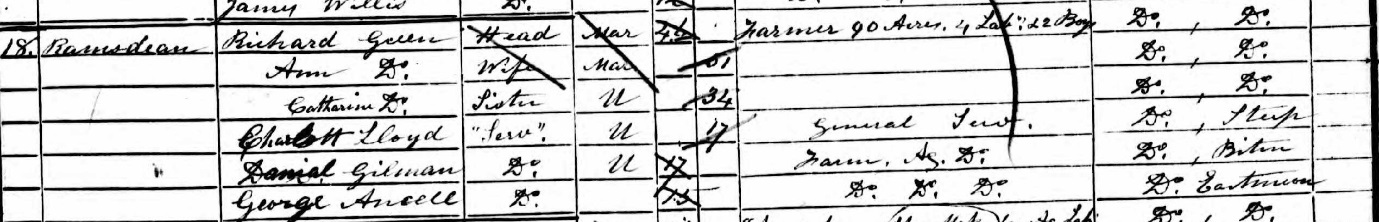 James Willis Do.
18. Ramsdean Richard Green Head Mar 42 Farmer 90 Acres. 4 Labr. & 2 Boys Do. , Do.
Ann Do. Wife Mar 51 Do. , Do.
Catharine Do. Sister U 34 Do. , Do.
Charlott Lloyd "Serv". U 17 General Serv. Do. , Steep
Danial Gilman Do. U 17 Farm. Ag. Do. Do. ,
George Ancell Do. 15 Do. Do. Do. Do. Eastmeon
Do. Do.